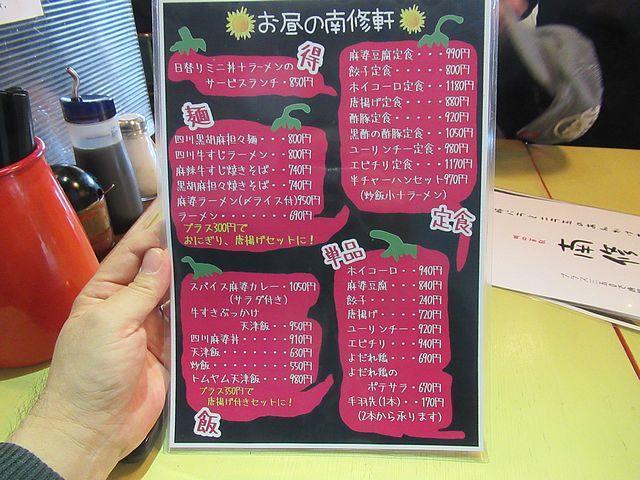 お昼の南修軒
得
日替りミニ丼+ラーメンの
サービスランチ・850円
麺
四川黒胡麻担々麺・・800円
四川牛すじラーメン・・800円
麻辣牛すじ焼きそば・・740円
黒胡麻担々焼きそば・・740円
麻婆ラーメン(〆ライス付)950円
ラーメン・・・・・・690円
プラス300円で
おにぎり、唐揚げセットに!
スパイス麻婆カレー・1050円
(サラダ付き)
牛すきぶっかけ
天津飯・・950円
四川麻婆丼・・・・910円
天津飯・・・・・・630円
炒飯・・・・・・・550円
トムヤム天津飯・・・980円
プラス350円で
唐揚げ付きセットに!
飯
麻婆豆腐定食・・・・990円
餃子定食・・・・・・800円
ホイコーロ定食・・・1180円
唐揚げ定食・・・・・880円
酢豚定食・・・・・・920円
黒酢の酢豚定食・・・1050円
ユーリンチー定食・・980円
エビチリ定食・・・・1170円
半チャーハンセット970円
(炒飯小+ラーメン)
定食
単品
ホイコーロ・・940円
麻婆豆腐・・・840円
餃子・・・・・240円
唐揚げ・・・・720円
ユーリンチー・・920円
エビチリ・・・940円
よだれ鶏・・・690円
よだれ鶏の
ポテサラ・670円
手羽先(1本)・・170円
(2本から承ります)
南修